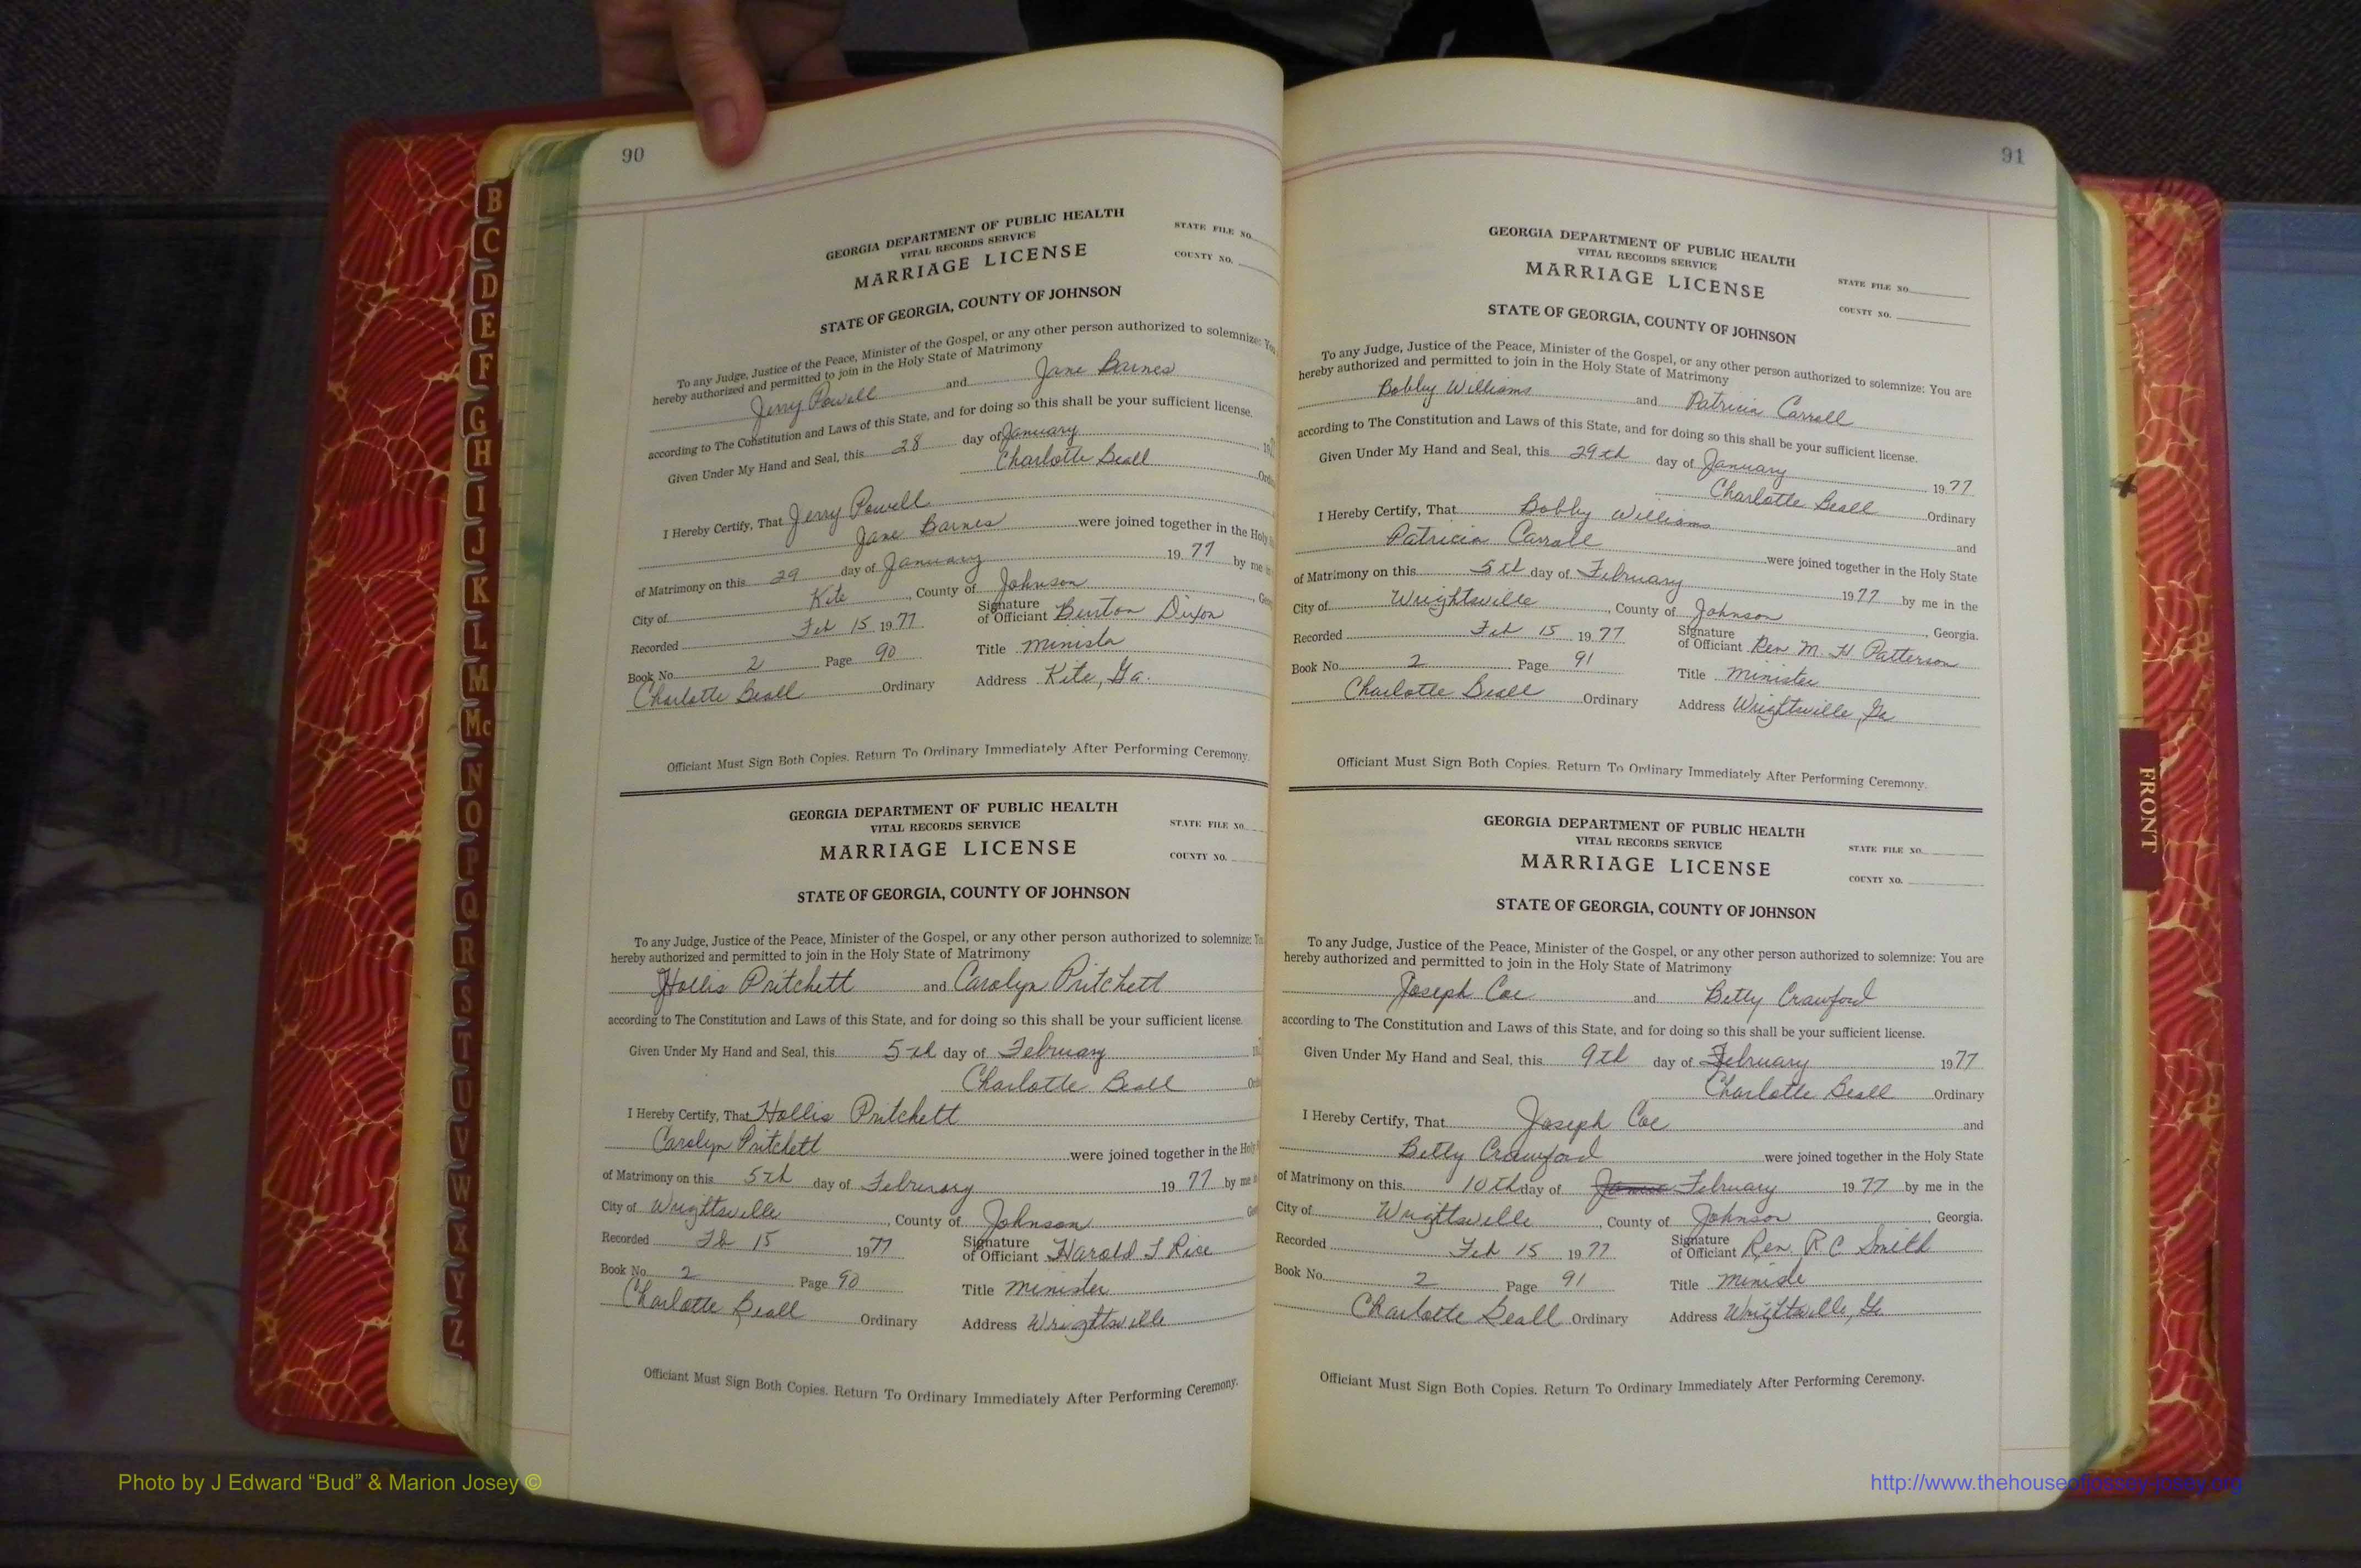 90
GEORGIA DEPARTMENT OF PUBLIC HEALTH
VITAL RECORDS SERVICE
MARRIAGE LICENSE
STATE FILE NO.
COUNTY NO.
STATE OF GEORGIA, COUNTY OF JOHNSON
To any Judge, Justice of the Peace, Minister of the Gospel, or any other person authorized to solemnize:
hereby authorized and permitted to join in the Holy State of Matrimony
Jerry Powell and Jane Barnes
according to The Constitution and Laws of this State, and for doing so this shall be your sufficient license.
Given Under My Hand and Seal, this 28 day of January
Charlotte Beall
I Hereby Certify, That Jerry Powell
Jane Barnes were joined together in the Holy
of Matrimony on this 29 day of January 1977 by me
City of Kite, County of Johnson
Recorded Feb 15 1977 Signature of Officiant Burton Dixon
Book No. 2 Page 90 Title Ministr
Charlotte Beall Ordinary Address Kite, Ga.
Officiant Must Sign Both Copies. Return To Ordinary Immediately After Performing Ceremony.
GEORGIA DEPARTMENT OF PUBLIC HEALTH
VITAL RECORDS SERVICE
MARRIAGE LICENSE
STATE FILE NO.
COUNTY NO.
STATE OF GEORGIA, COUNTY OF JOHNSON
To any Judge, Justice of the Peace, Minister of the Gospel, or any other person authorized to solemnize:
hereby authorized and permitted to join in the Holy State of Matrimony
Hollis Pritchett and Carolyn Pritchett
according to The Constitution and Laws of this State, and for doing so this shall be your sufficient license.
Given Under My Hand and Seal, this 5th day of February
Charlotte Beall
I Hereby Certify, That Hollis Pritchett
Carolyn Pritchett were joined together in the Holy
of Matrimony on this 5th day of February 1977 by me
City of Wrightsville, County of Johnson
Recorded Feb 15 1977 Signature of Officiant Harold L Rice
Book No. 2 Page 90 Title Minister
Charlotte Beall Ordinary Address Wrightsville
Officiant Must Sign Both Copies. Return To Ordinary Immediately After Performing Ceremony.
91
GEORGIA DEPARTMENT OF PUBLIC HEALTH
VITAL RECORDS SERVICE
MARRIAGE LICENSE
STATE FILE NO.
COUNTY NO.
STATE OF GEORGIA, COUNTY OF JOHNSON
To any Judge, Justice of the Peace, Minister of the Gospel, or any other person authorized to solemnize: You are
hereby authorized and permitted to join in the Holy State of Matrimony
Bobby Williams and Patricia Carroll
according to The Constitution and Laws of this State, and for doing so this shall be your sufficient license.
Given Under My Hand and Seal, this 29th day of January 1977
Charlotte Beall Ordinary
I Hereby Certify, That Bobby Williams and
Patricia Carroll were joined together in the Holy State
of Matrimony on this 5th day of February 1977 by me in the
City of Wrightsville, County of Johnson, Georgia.
Recorded Feb 15 1977 Signature of Officiant Rev M. H Patterson
Book No. 2 Page 91 Title Minister
Charlotte Beall Ordinary Address Wrightsville, Ga
Officiant Must Sign Both Copies. Return To Ordinary Immediately After Performing Ceremony.
GEORGIA DEPARTMENT OF PUBLIC HEALTH
VITAL RECORDS SERVICE
MARRIAGE LICENSE
STATE FILE NO.
COUNTY NO.
STATE OF GEORGIA, COUNTY OF JOHNSON
To any Judge, Justice of the Peace, Minister of the Gospel, or any other person authorized to solemnize: You are
hereby authorized and permitted to join in the Holy State of Matrimony
Joseph Coe and Betty Crawford
according to The Constitution and Laws of this State, and for doing so this shall be your sufficient license.
Given Under My Hand and Seal, this 9th day of February 1977
Charlotte Beall Ordinary
I Hereby Certify, That Joseph Coe and
Betty Crawford were joined together in the Holy State
of Matrimony on this 10th day of February 1977 by me in the
City of Wrightsville, County of Johnson, Georgia.
Recorded Feb 15 1977 Signature of Officiant Rev. R C Smith
Book No. 2 Page 91 Title Ministe
Charlotte Beall Ordinary Address Wrightsville, Ga
Officiant Must Sign Both Copies. Return To Ordinary Immediately After Performing Ceremony.
B
C
D
E
F
G
H
I
J
K
L
M
Mc
N
O
P
Q
R
S
T
U
V
W
X
Y
Z
FRONT
Photo by J Edward “Bud” & Marion Josey ©
http://www.thehouseofjossey-josey.org